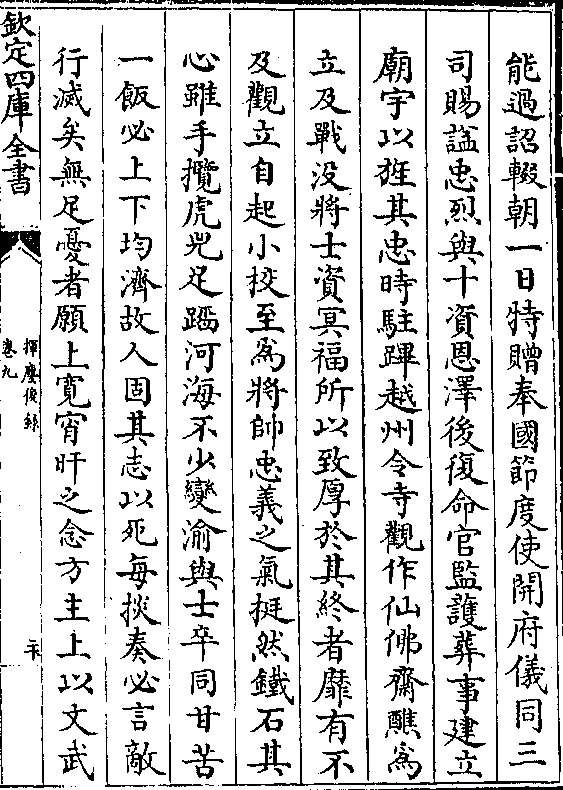 能過詔輟朝一日特贈奉國節度使開府儀同三
司賜諡忠烈與十資恩澤後復命官監護葬事建立
廟宇以旌其忠時駐蹕越州令寺觀作仙佛齋醮爲
立及戰没將士資冥福所以致厚於其終者靡有不
及觀立自起小校至爲將帥忠義之氣挺然鐵石其
心雖手攬虎兕足蹈河海不少變渝與士卒同甘苦
一飯必上下均濟故人固其志以死每掞奏必言敵
行滅矣無足憂者願上寛宵旰之念方主上以文武
欽定四庫全書
揮麈後録
卷九